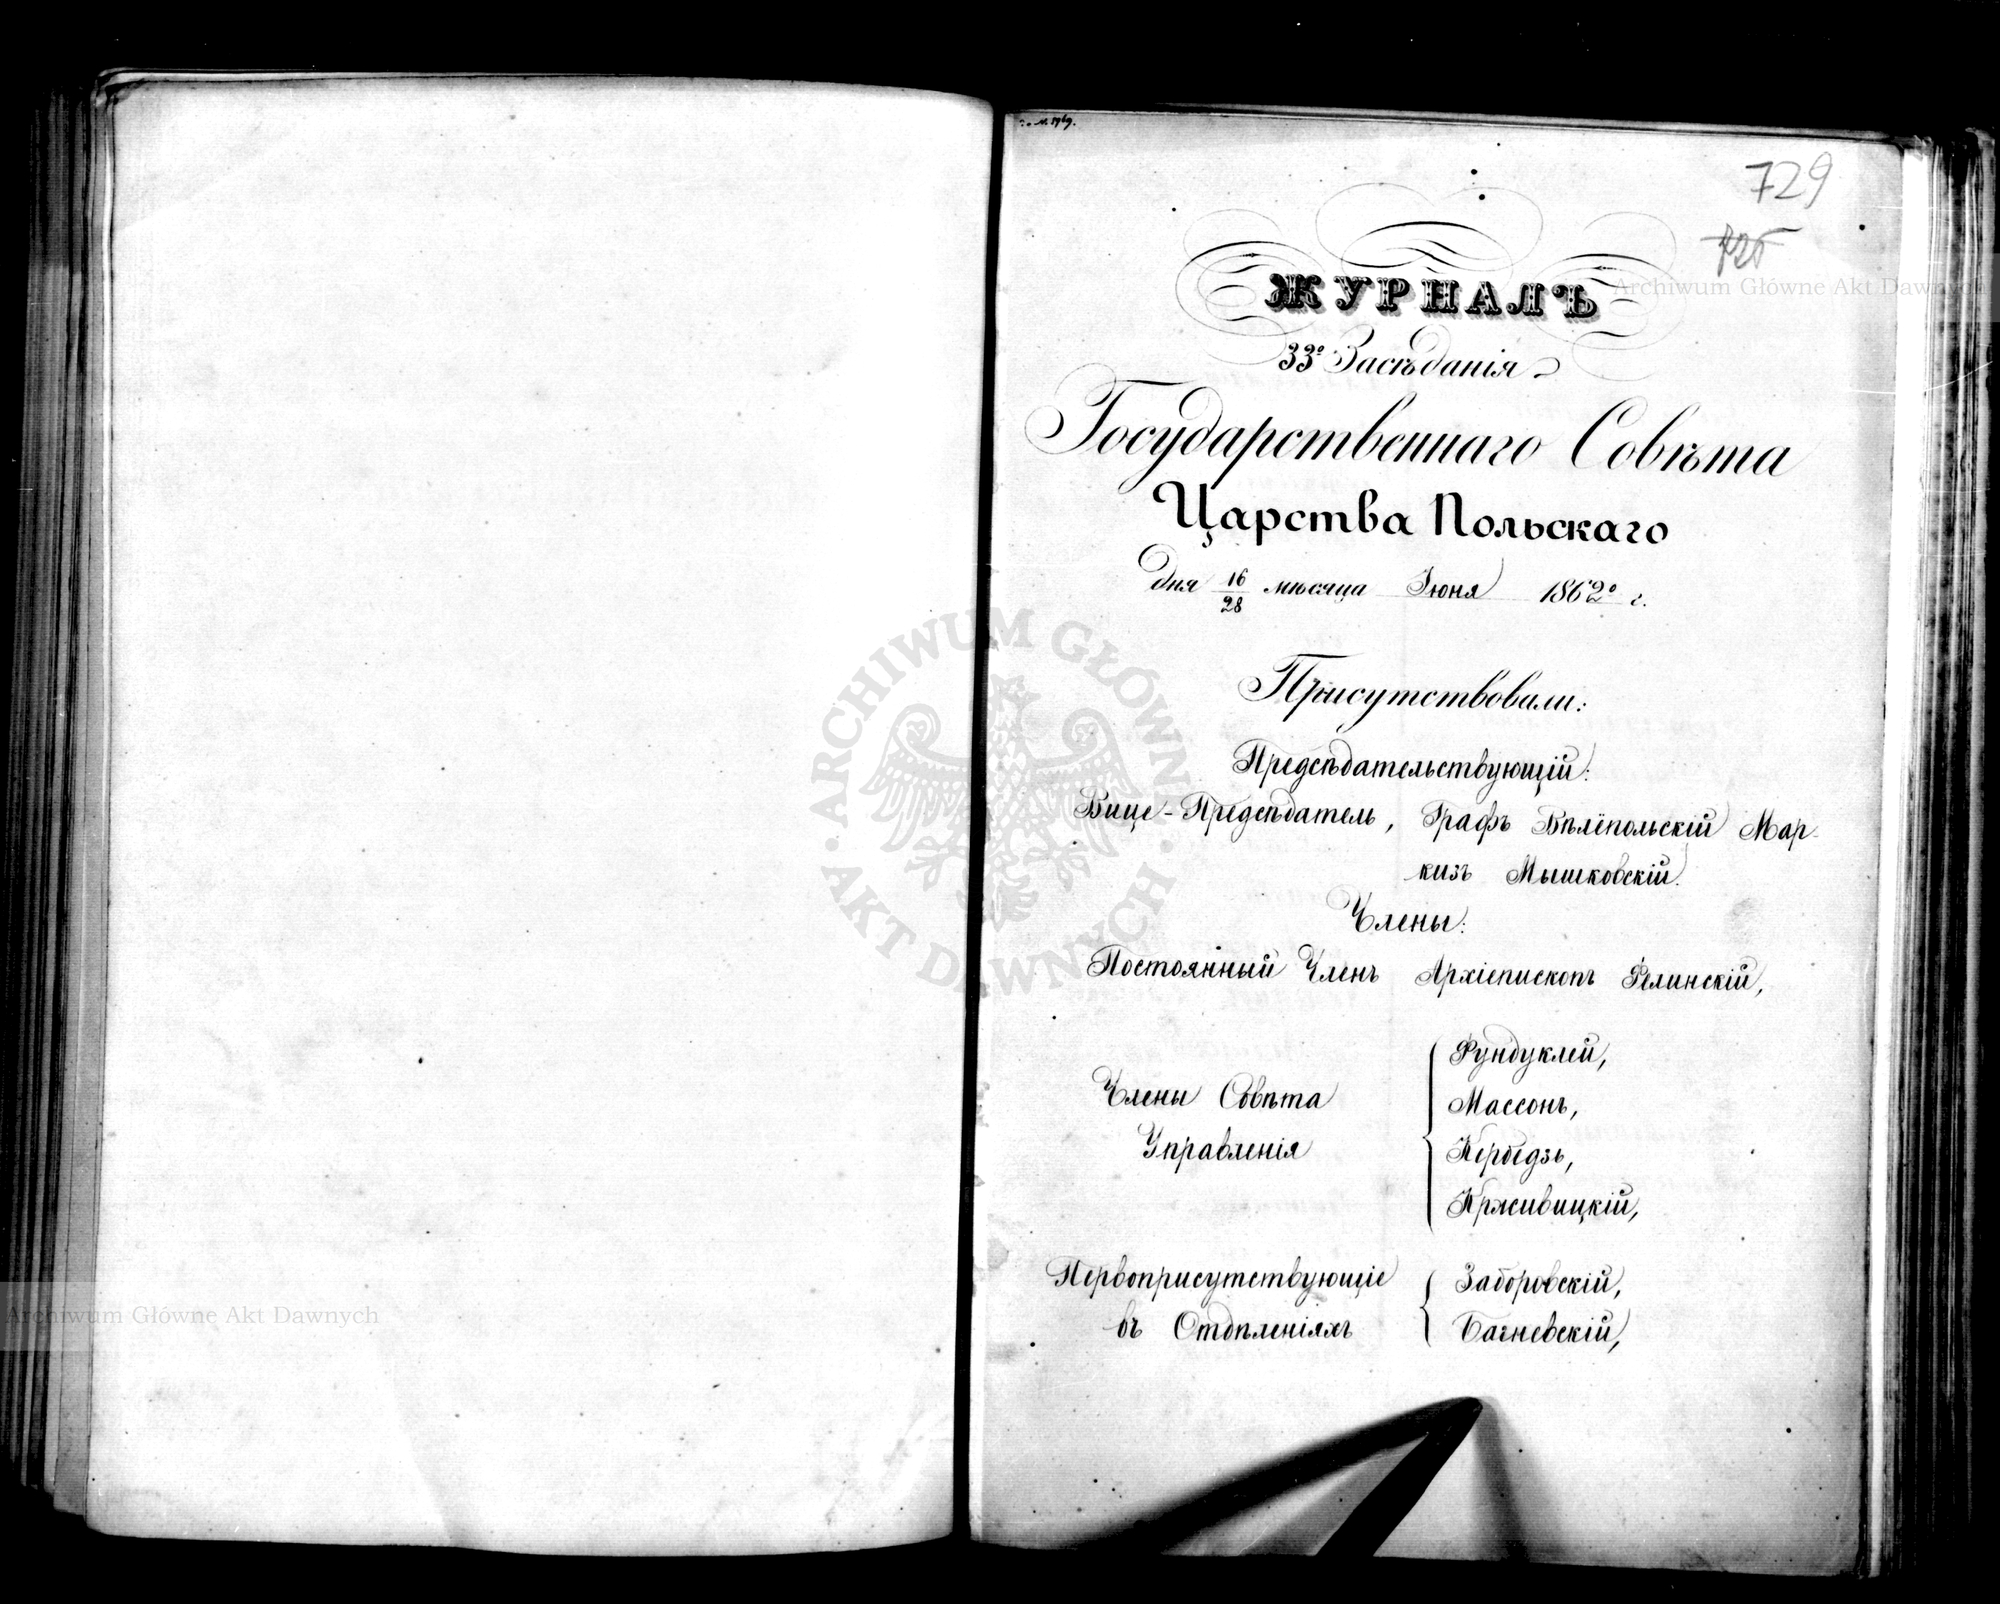 729
ЖУРНАЛЪ
33º Засѣданія
Государственнаго Совѣта
Царства Польскаго
дня 16/28 мѣсяца Іюня 1862º г.
Присутствовали:
Предсѣдательствующій:
Вице-Предсѣдатель, Графъ Вѣлёпольскій Мар-
кизъ Мышковскій.
Члены:
Постоянный Членъ Архіепископъ Фелинскій,
Члены Совѣта
Управленія
Фундуклей,
Массонъ,
Кербедзъ,
Крживицкій,
Первоприсутствующіе
въ Отдѣленіяхъ
Заборовскій,
Багневскій,
ARCHIWUM GŁÓWNE AKT DAWNYCH
Archiwum Główne Akt Dawnych
Archiwum Główne Akt Dawnych